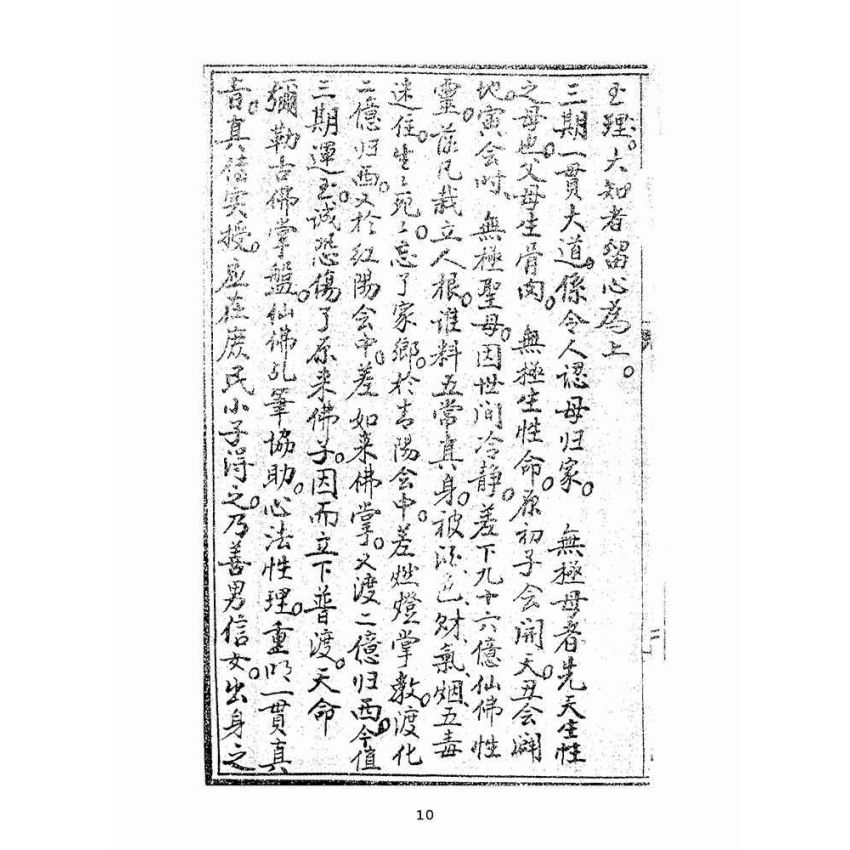 玉理。大知者留心為上。
三期一貫大道。係令人認母归家。 無極母者先天生性
之母也。父母生骨肉。 無極生性命。原初子会開天。丑会闢
地。寅会时、 無極聖母。因世间冷静。差下九十六億仙佛性
靈。落凡栽立人根。谁料五常真身。被酒色财氣烟五毒
迷住。生々死々。忘了家鄉。於青陽会中。差燃燈掌教。渡化
二億归西。又於红陽会中。差如来佛掌。又渡二億归西。今值
三期運至。诚恐傷了原来佛子。因而立下普渡。天命
彌勒古佛掌盤。仙佛乩筆協助。心法性理。重明一貫真
旨。真傳实授。应在庶民小子淂之。乃善男信女。出身之
10